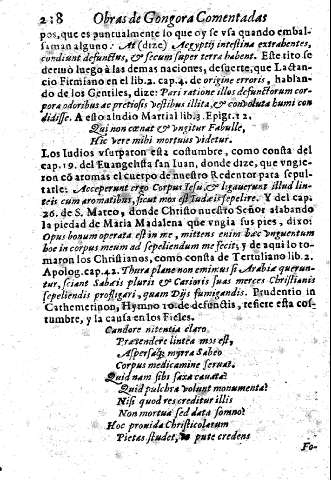 238 Obras de Gongora Comentadas
pos, que es puntualmente lo que oy se vsa quando embal-
saman alguno: At (dize) Aegyptij intestina extrahentes,
condiunt defunctus, & secum super terra habent. Este rito se
deriuò luego à las demas naciones, desuerte, que Lactan-
cio Firmiano en el lib. 2. cap. 4. de origine erroris, hablan-
do de los Gentiles, dize: Pari ratione illos defunctorum cor-
pora odoribus ac pretiosis vestibus illita, & conuoluta humi con
didisse. A esto aludio Martial lib. 3. Epigr. 12.
Qui non cœnat & vngitur Fabulle,
Hic vere mihi mortuus videtur.
Los Iudios vsurparon esta costumbre, como consta del
cap. 19. del Euangelista san Iuan, donde dize, que vngie-
ron cõ atomas el cuerpo de nuestro Redentor para sepul-
tarle: Acceperunt ergo Corpus Iesu, & ligauerunt illud lin-
teis cum aromatibus, sicut mos est Iudæis sepelire. Y del cap.
26. de S. Mateo, donde Christo nuestro Señor alabando
la piedad de Maria Madalena que vngia sus pies, dixo:
Opus bonum operata est in me, mittens enim hæc vnguentum
hoc in corpus meum ad sepeliendum me fecit; y de aqui lo to-
maron los Christianos, como consta de Tertuliano lib. 2.
Apolog. cap. 42. Thura plane non emimus si Arabiæ querun-
tur, sciant Sabæis pluris & Carioris suas merces Christianis
sepeliendis profligari, quam Dijs fumigandis. Prudentio in
Cathemerinon, Hymno 10. de defunctis, refiere esta cos-
tumbre, y la causa en los Fieles.
Candore nitentia claro
Prætendere lintea mos est,
Aspersaq; myrra Sabeo
Corpus medicamine seruat.
Quid nam sibi saxa cauata?
Quid pulchra volunt monumenta?
Nisi quod res creditur illis
Non mortua sed data somno?
Hoc prouida Christicolarum
Pietas studet, pute credens
Fo-